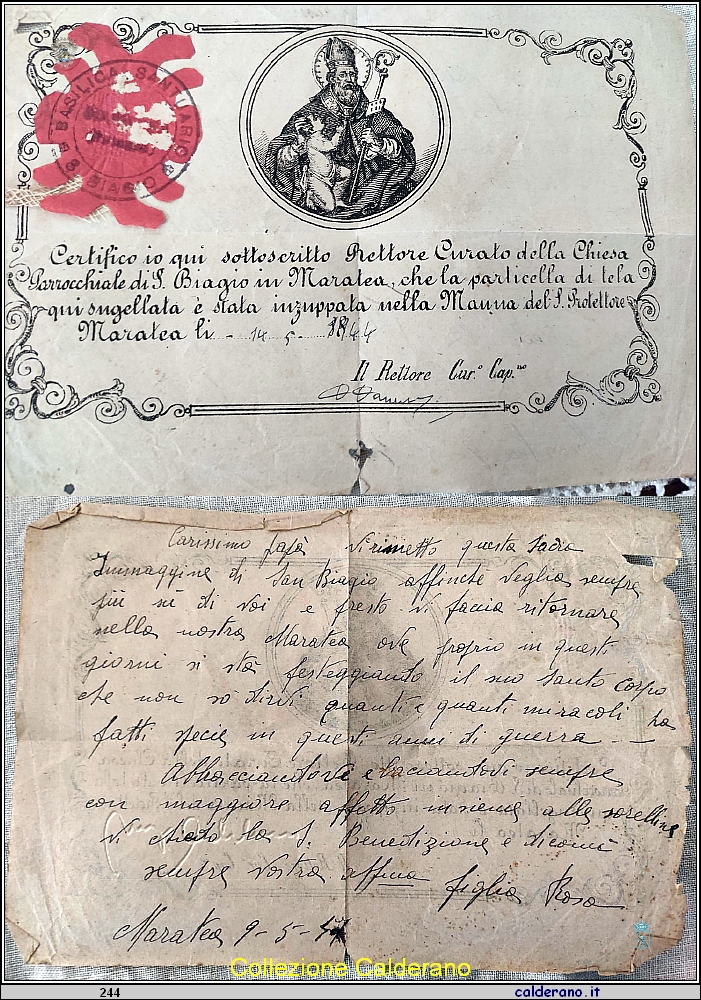 BASILICA SANTUARIO
S. BIAGIO
Certifico io qui sottoscritto Rettore Curato della Chiesa
Parrocchiale di S. Biagio in Maratea, che la particella di tela
qui sugellata è stata inzuppata nella Manna del S. Protettore
Maratea li 14 5 1944
Il Rettore Cur.º Cap.
Carissimo papà vi rimetto questa sacra
Immaggine di San Biagio affinche veglia sempre
su di voi e presto vi faccia ritornare
nella nostra Maratea ove proprio in questi
giorni si stà festeggiando il suo santo corpo
che non sò dirvi quanti e quanti miracoli ha
fatti specie in questi anni di guerra
Abbracciandovi e baciandovi sempre
con maggiore affetto insieme alle sorelline
vi chiedo la S. Benedizione e dicomi
sempre vostra affma figlia Rosa
Maratea 9-5-
Collezione Calderano
244
calderano.it